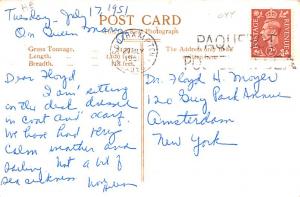 Tuesday, July 17, 1951
POST CARD
On Queen Mary
Photograph
Gross Tonnage,
Length,
Breadth,
The Address only
PAQUE
POSTAGE
REVENUE
Dear Floyd
I am sitting
on the deck dressed
in coat and scarf.
We have had very
calm weather and
sailing. Not a lot of
sea sickness.
Dr. Floyd H. Moyer
120 Guy Park Avenue
Amsterdam
New York